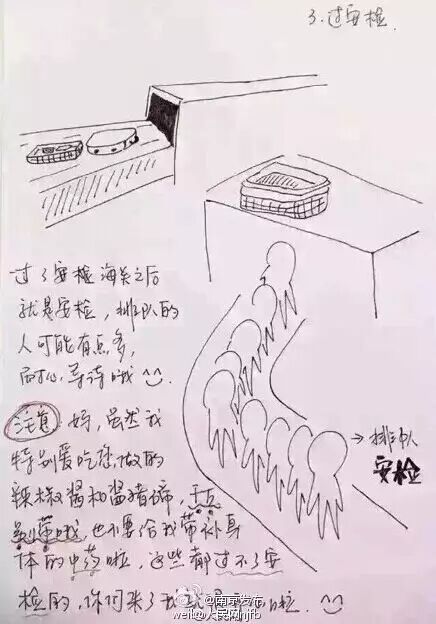 3.过安检
过了安检海关之后
就是安检，排队的
人可能有点多，
耐心等待哦
注意：妈，虽然我
特别爱吃您做的
辣椒酱和酱猪蹄，千万
别带哦，也不要给我带补身
体的中药啦，这些都过不了安
检的，你们来了我就 啦．
→排队
安检
@南京发布
@人民网njfb